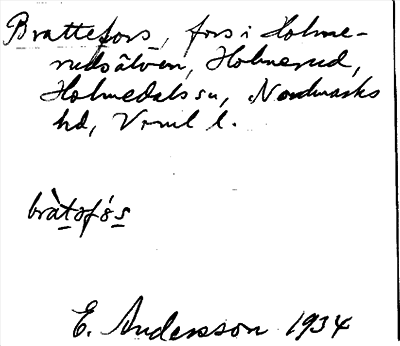 Brattefors, fors i Holme-
rudsälven, Holmerud,
Holmedals sn, Nordmarks
hd, Vrml l.
bràtofós
E. Andersson 1934